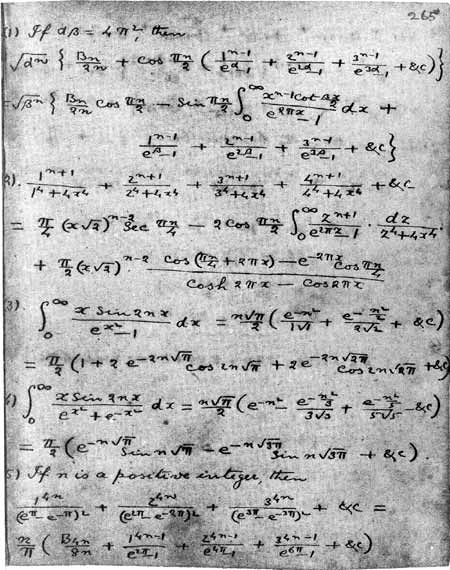 265
(1) If αβ = 4π², then
√αⁿ { Bn/2n + cos πn/2 ( 1ⁿ⁻¹/(e^α-1) + 2ⁿ⁻¹/(e^2α-1) + 3ⁿ⁻¹/(e^3α-1) + &c ) }
= √βⁿ { Bn/2n cos πn/2 - sin πn/2 ∫₀^∞ xⁿ⁻¹ cot βx/2 / (e^2πx - 1) dx +
1ⁿ⁻¹/(e^β-1) + 2ⁿ⁻¹/(e^2β-1) + 3ⁿ⁻¹/(e^3β-1) + &c }
2). 1ⁿ⁺¹/(1⁴+4x⁴) + 2ⁿ⁺¹/(2⁴+4x⁴) + 3ⁿ⁺¹/(3⁴+4x⁴) + 4ⁿ⁺¹/(4⁴+4x⁴) + &c
= π/4 (x√2)ⁿ⁻² sec πn/4 - 2 cos πn/2 ∫₀^∞ zⁿ⁺¹/(e^2πz - 1) · dz/(z⁴+4x⁴)
+ π/2 (x√2)ⁿ⁻² · (cos(πn/4 + 2πx) - e^-2πx cos πn/4) / (cosh 2πx - cos 2πx)
3) ∫₀^∞ x sin 2nx / (e^x² - 1) dx = n√π/2 ( e^-n²/1√1 + e^-n²/2/2√2 + &c )
= π/2 (1 + 2 e^-2n√π cos 2n√π + 2 e^-2n√2π cos 2n√2π + &c)
4) ∫₀^∞ x sin 2nx / (e^x² + e^-x²) dx = n√π/2 ( e^-n² - e^-n²/3/3√3 + e^-n²/5/5√5 - &c )
= π/2 ( e^-n√π sin n√π - e^-n√3π sin n√3π + &c ).
5) If n is a positive integer, then
1⁴ⁿ/(e^π - e^-π)² + 2⁴ⁿ/(e^2π - e^-2π)² + 3⁴ⁿ/(e^3π - e^-3π)² + &c =
n/π ( B4n/8n + 1⁴ⁿ⁻¹/(e^2π-1) + 2⁴ⁿ⁻¹/(e^4π-1) + 3⁴ⁿ⁻¹/(e^6π-1) + &c )